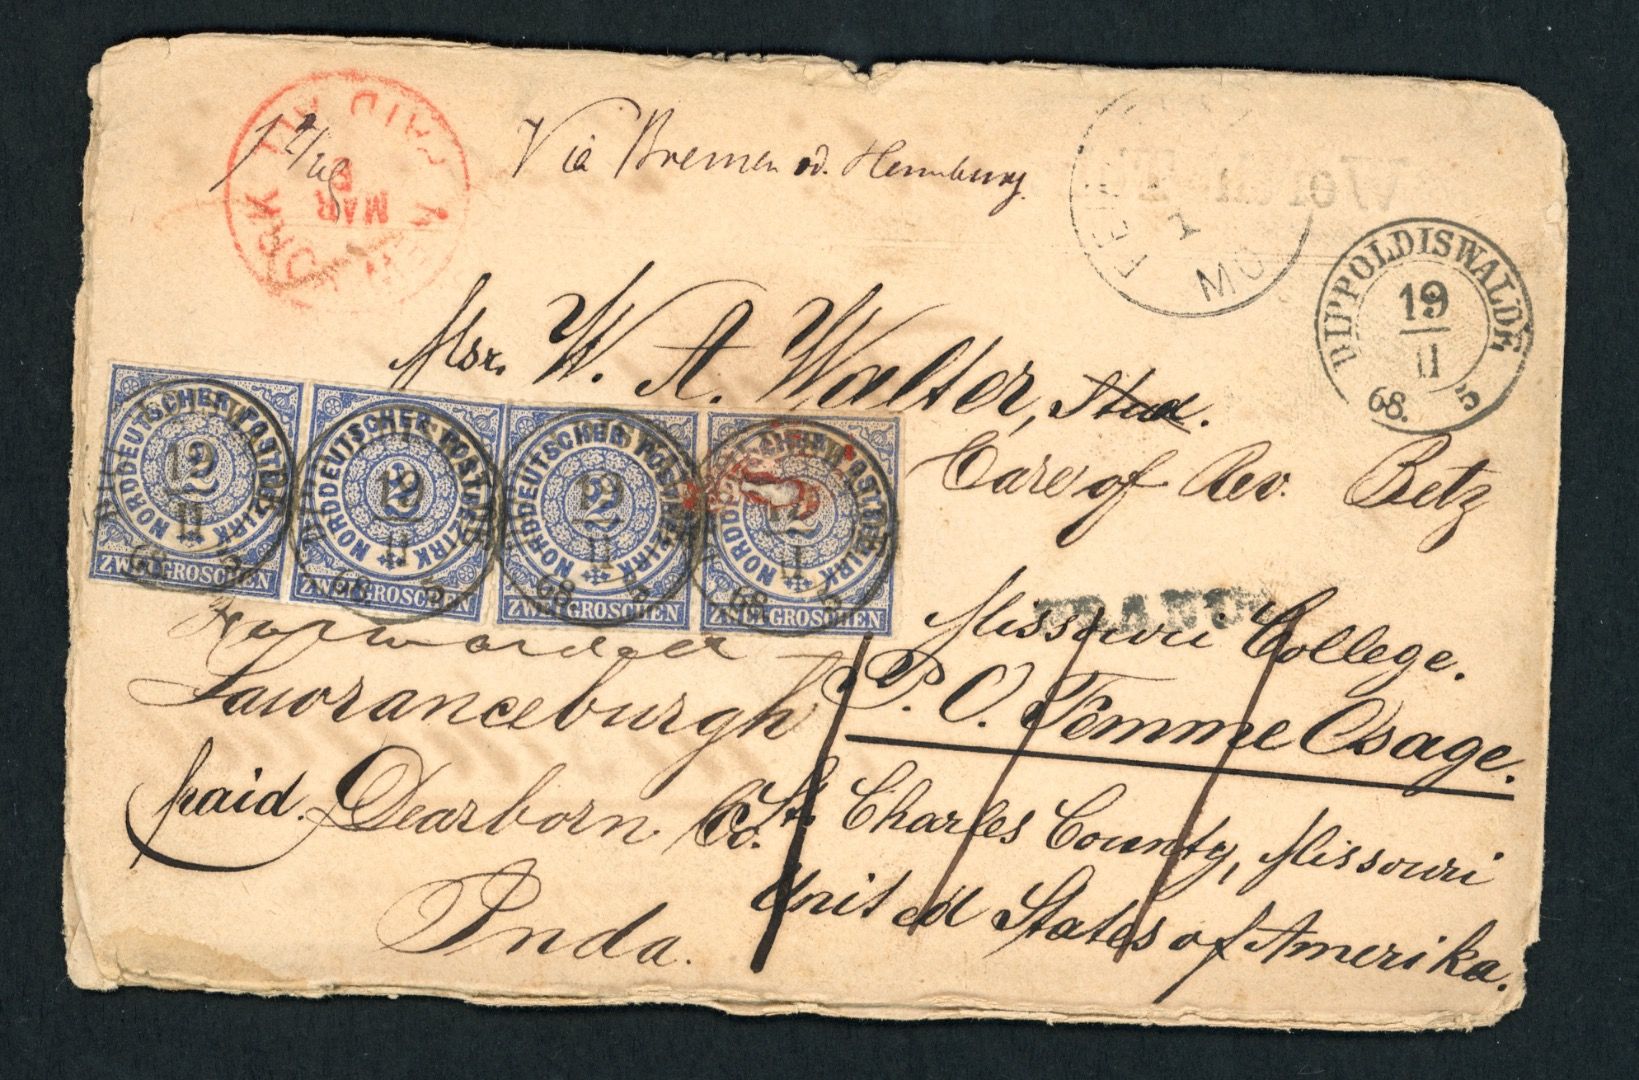 Via Bremen od. Hamburg.
NEW YORK
PAID ALL
MAR
FEMME
1
MO
DIPPOLDISWALDE
19
II
68. 5
Mr. W. A. Walter, Stud.
Care of Rev. Betz
NORDDEUTSCHER POSTBEZIRK
2
ZWEI GROSCHEN
NORDDEUTSCHER POSTBEZIRK
2
ZWEI GROSCHEN
NORDDEUTSCHER POSTBEZIRK
2
ZWEI GROSCHEN
NORDDEUTSCHER POSTBEZIRK
2
ZWEI GROSCHEN
19
II
68 5
19
II
68 5
19
II
68 5
68 5
FRANCO
Missouri College.
P. O. Femme Osage.
St. Charles County, Missouri
United States of Amerika.
Forwarded
Lawranceburgh
paid. Dearborn Co.
Inda.